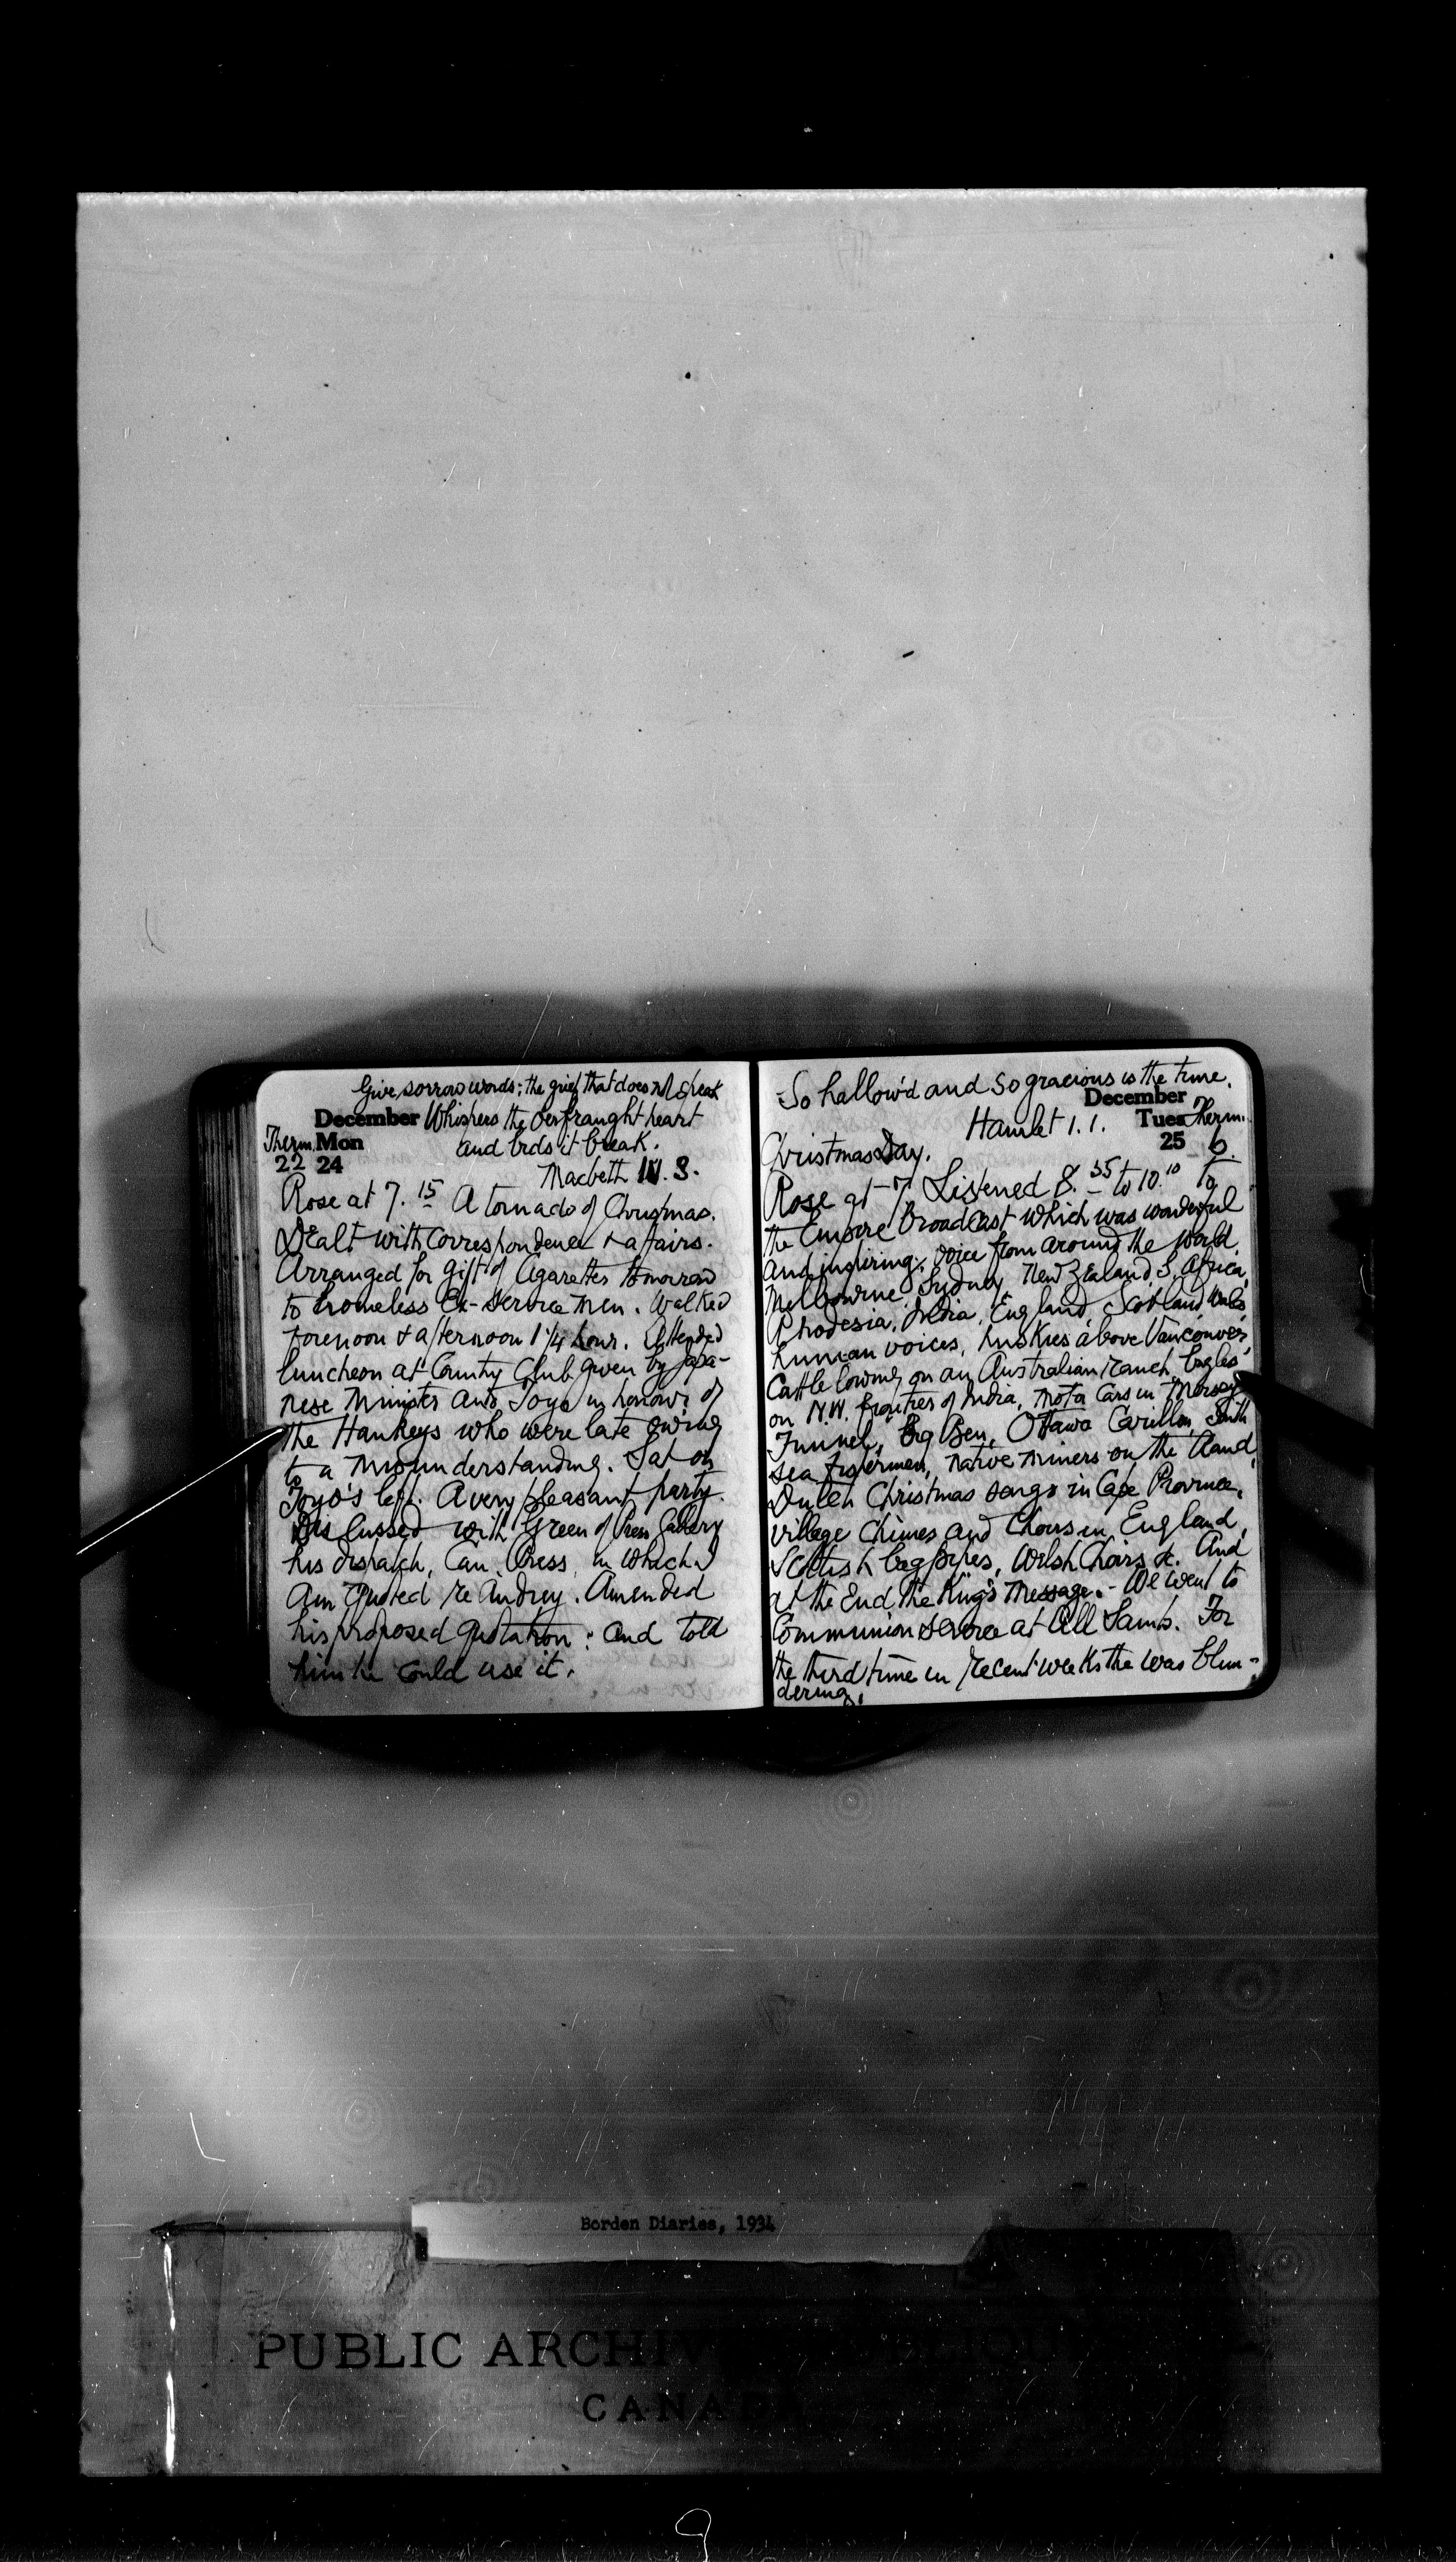 Give sorrow words; the grief that does not speak
December Whispers the o'erfraught heart
Therm Mon and bids it break.
22 24 Macbeth IV. 3.
Rose at 7.15 A tornado of Christmas.
Dealt with correspondence & affairs.
Arranged for gift of Cigarettes tomorrow
to homeless Ex-Service men. Walked
forenoon & afternoon 1 1/4 hour. Attended
luncheon at Country Club given by Japa-
nese Minister and Toyo in honour of
the Hankeys who were late owing
to a misunderstanding. Sat on
Toyo's left. A very pleasant party.
Discussed with Green of Press Gallery
his dispatch, Can. Press, in which I
am quoted re Audrey. Amended
his proposed quotation; and told
him he could use it.
So hallow'd and so gracious is the time.
December
Hamlet 1.1. Tues Therm.
25 6.
Christmas Day.
Rose at 7. Listened 8.35 to 10.10 to
the Empire broadcast which was wonderful
and inspiring; voice from around the world.
Melbourne, Sydney, New Zealand, S. Africa,
Rhodesia, India, England, Scotland Wales
human voices, huskies above Vancouver,
Cattle lowing on an Australian ranch, bugles
on N.W. frontier of India, motor Cars in Mersey
Tunnel, Big Ben, Ottawa Carillon, South
sea fishermen, native miners on the Rand,
Dutch Christmas songs in Cape Province,
village Chimes and Choirs in England,
Scottish bagpipes, Welsh Choirs &c. And
at the End the King's message. - We went to
Communion service at All Saints. For
the third time in recent weeks the was blun-
dering.
Borden Diaries, 1934
PUBLIC ARCHIV
CANADA
9